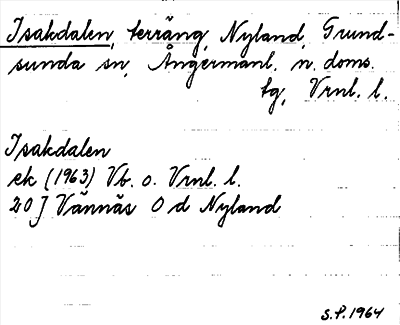 Isakdalen, terräng, Nyland, Grund-
sunda sn, Ångermanl. n. doms.
tg, Vrnl. l.
Isakdalen
ek (1963) Vb. o. Vrnl. l.
20J Vännäs 0 d Nyland
S.P. 1964